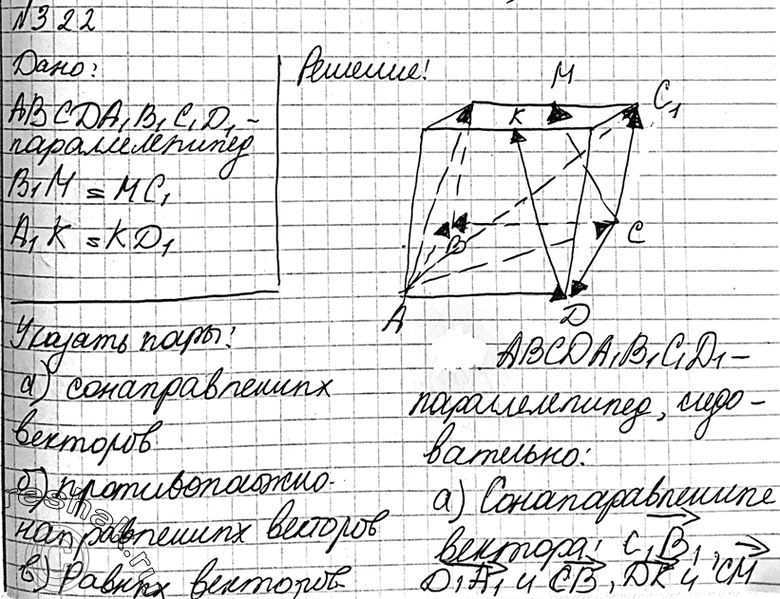 №322
Дано:
ABCDA₁B₁C₁D₁ -
параллелепипед
B₁M = MC₁
A₁K = KD₁
Указать пары:
а) сонаправленных
векторов
б) противоположно-
направленных векторов
в) Равных векторов
Решение!
M
K
C₁
B
C
A
D
ABCDA₁B₁C₁D₁ -
параллелепипед, следо-
вательно:
а) Сонаправленные
вектора: C₁B₁,
D₁A₁ и CB, DK и CM
reshak.ru